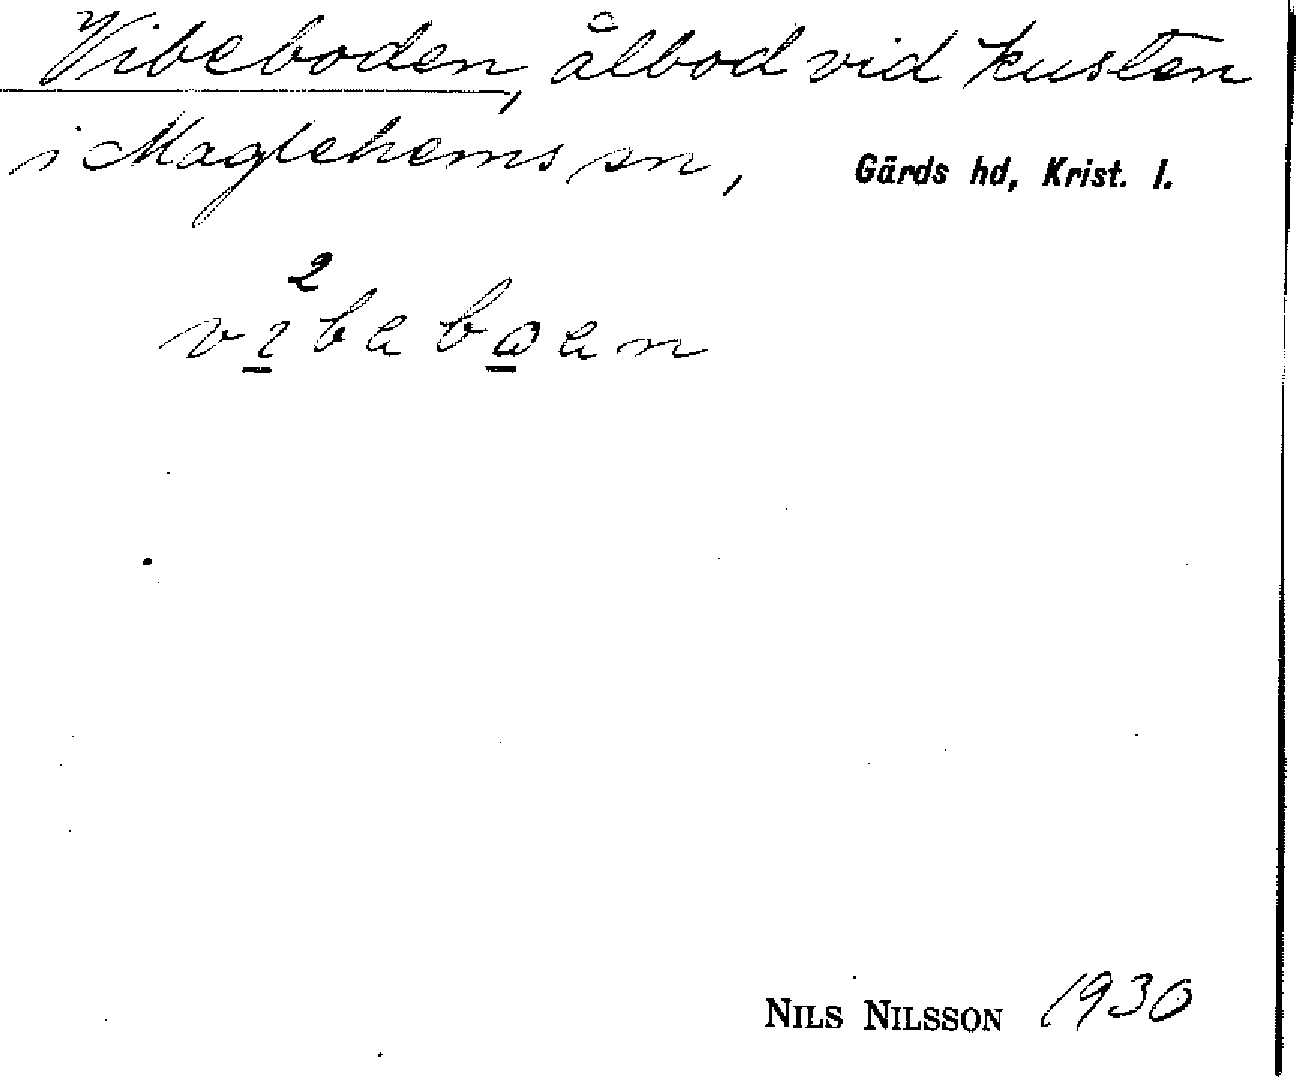 Vibeboden, ålbod vid kusten
i Maglehems sn, Gärds hd, Krist. l.
2
vibeboen
NILS NILSSON 1930